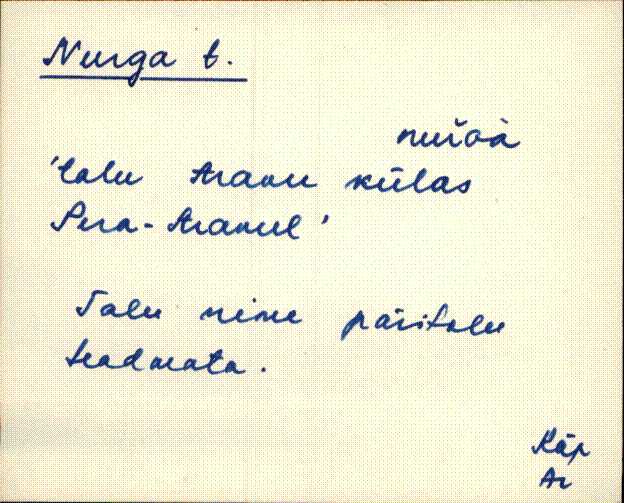 Nurga t.
'talu Aravu külas
Pera-Aravul'
Talu nime päritolu
teadmata.
Räp
Ar